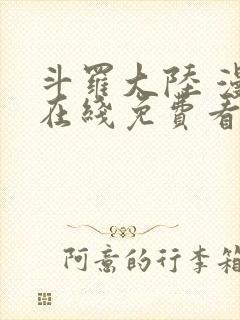 斗羅大陸
在綫免費看
阿意的行李箱